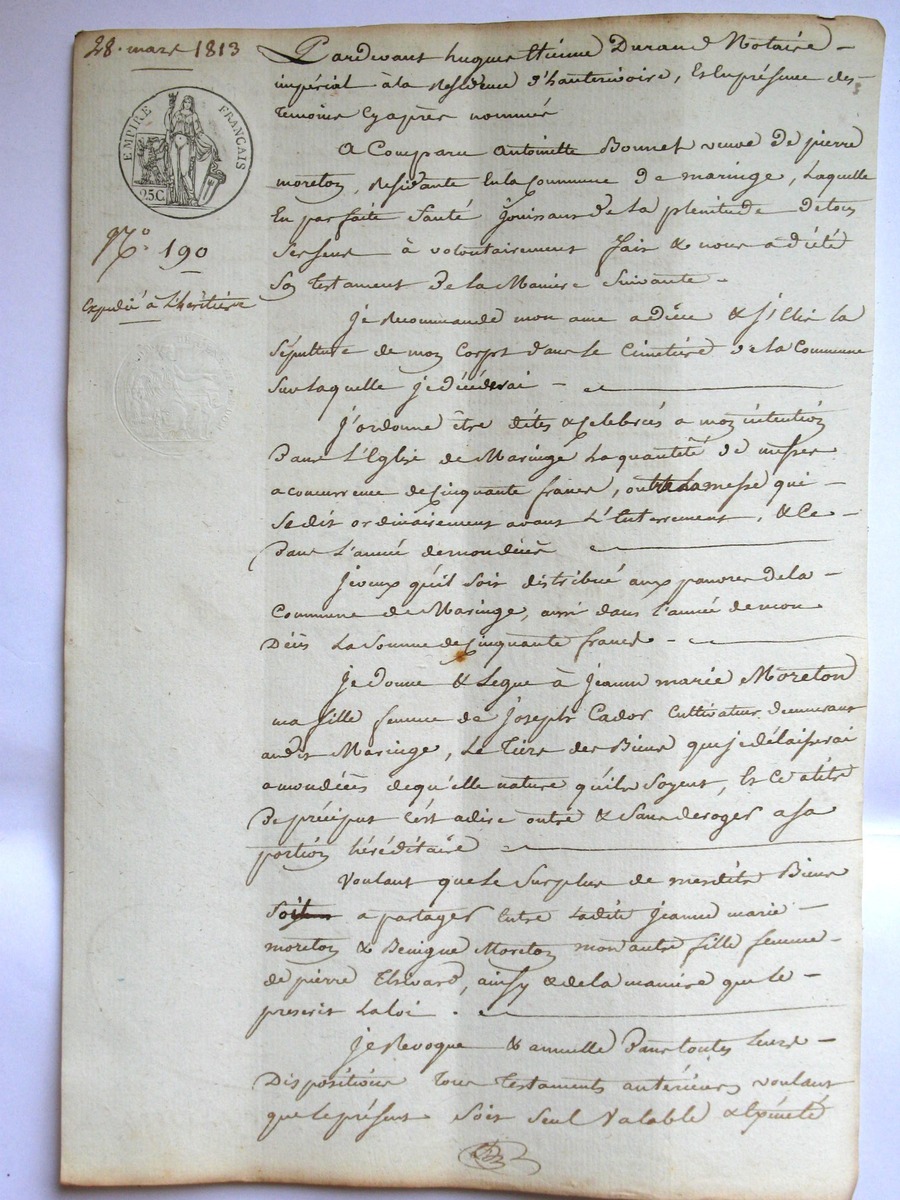 28. mars 1813
EMPIRE FRANÇAIS
25C.
N.º 190
Expedié à L'héritière
Pardevant hugues Etienne Durand Notaire
impérial à la Résidence d'hauterivoire, Et En présence des
temoins Cyaprès nommés
A Comparu Antoinette Bonnet veuve De pierre
moreton, Résidante En la Commune de maringe, Laquelle
En parfaite Santé Jouissant De la plenitude De tous
Ses sens à volontairement fait & nous a dicté
Son testament De la Maniere Suivante -
Je Recommande mon ame a dieu & J'Elis la
Sépulture de mon Corps dans Le Cimetière de la Commune
Sur Laquelle je décéderai -
J'ordonne être dites & Celebrées a mon intention
Dans L'Eglise de Maringe La quantité de messes
a concurrence de Cinquante francs, outre La messe qui -
Se dit ordinairement avant L'Enterrement, & Ce -
Dans L'année de mon décès
Je veux qu'il soit distribué aux pauvres de la -
Commune de Maringe, aussi dans L'année de mon
Décès La Somme de Cinquante francs -
Je donne & Legue à Jeanne marie Moreton
ma fille femme de Joseph Cador Cultivateur demeurant
audit Maringe, Le Tiers des Biens que je délaisserai
a mon décès de qu'elle nature qu'ils Soyent, Et Ce a titre
De préciput C'est adire outre & Sans deroger a sa
portion héréditaire
Voulant que Le Surplus de mesdits Biens
Soit a partager Entre Ladite Jeanne marie -
moreton & Benigne Moreton mon autre fille femme -
de pierre Thivard, ainsy & de la maniere que le -
prescrit La loi.
Je Revoque & annulle Dans toutes Leurs -
Dispositions Tous Testaments antérieurs voulant
que le présent Soit Seul Valable & Executé